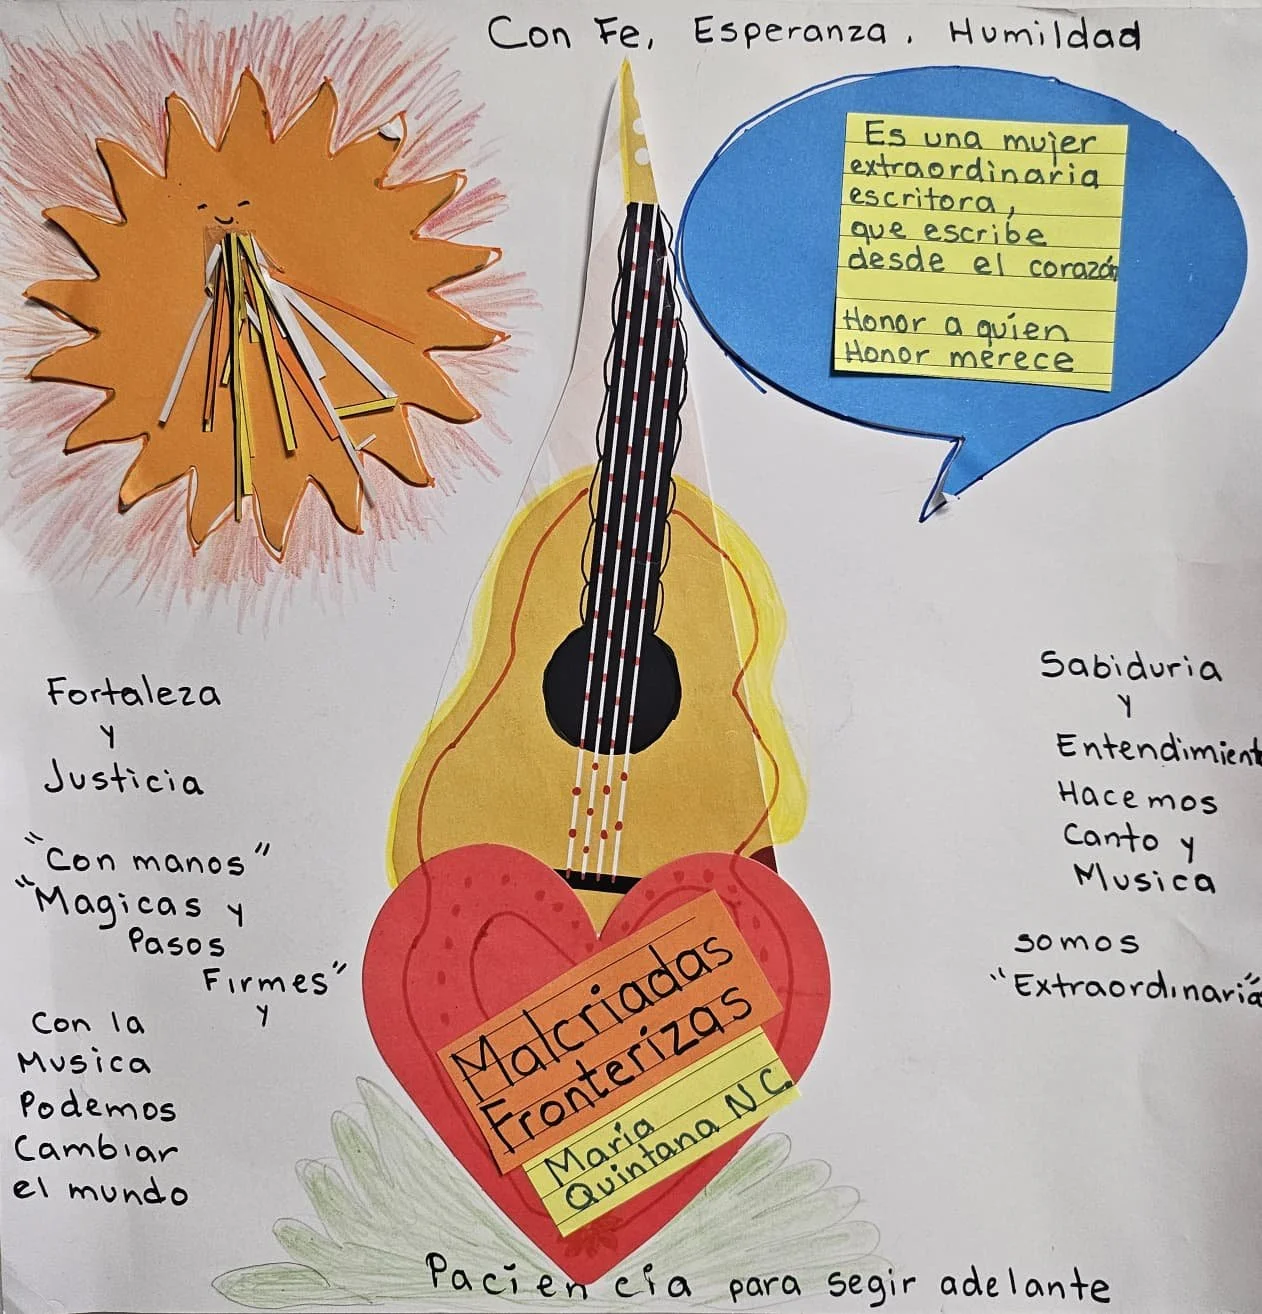 Con Fe, Esperanza, Humildad
Es una mujer
extraordinaria
escritora,
que escribe
desde el corazón
Honor a quien
Honor merece
Fortaleza
y
Justicia
"Con manos"
"Magicas y
Pasos
Firmes"
y
Con la
Musica
Podemos
Cambiar
el mundo
Sabiduria
y
Entendimient
Hacemos
Canto y
Musica
somos
"Extraordinaria"
Malcriadas
Fronterizas
María
Quintana N C.
Paciencia para segir adelante